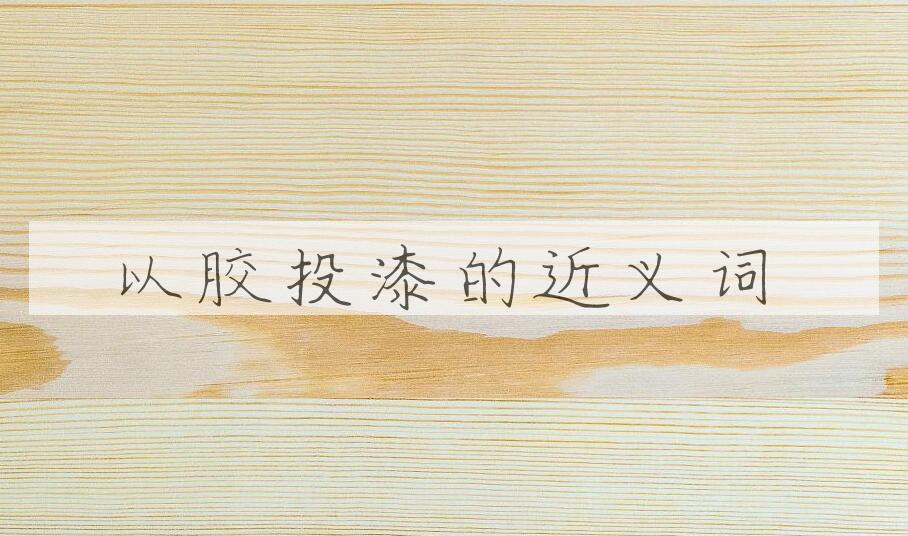 以胶投漆的近义词